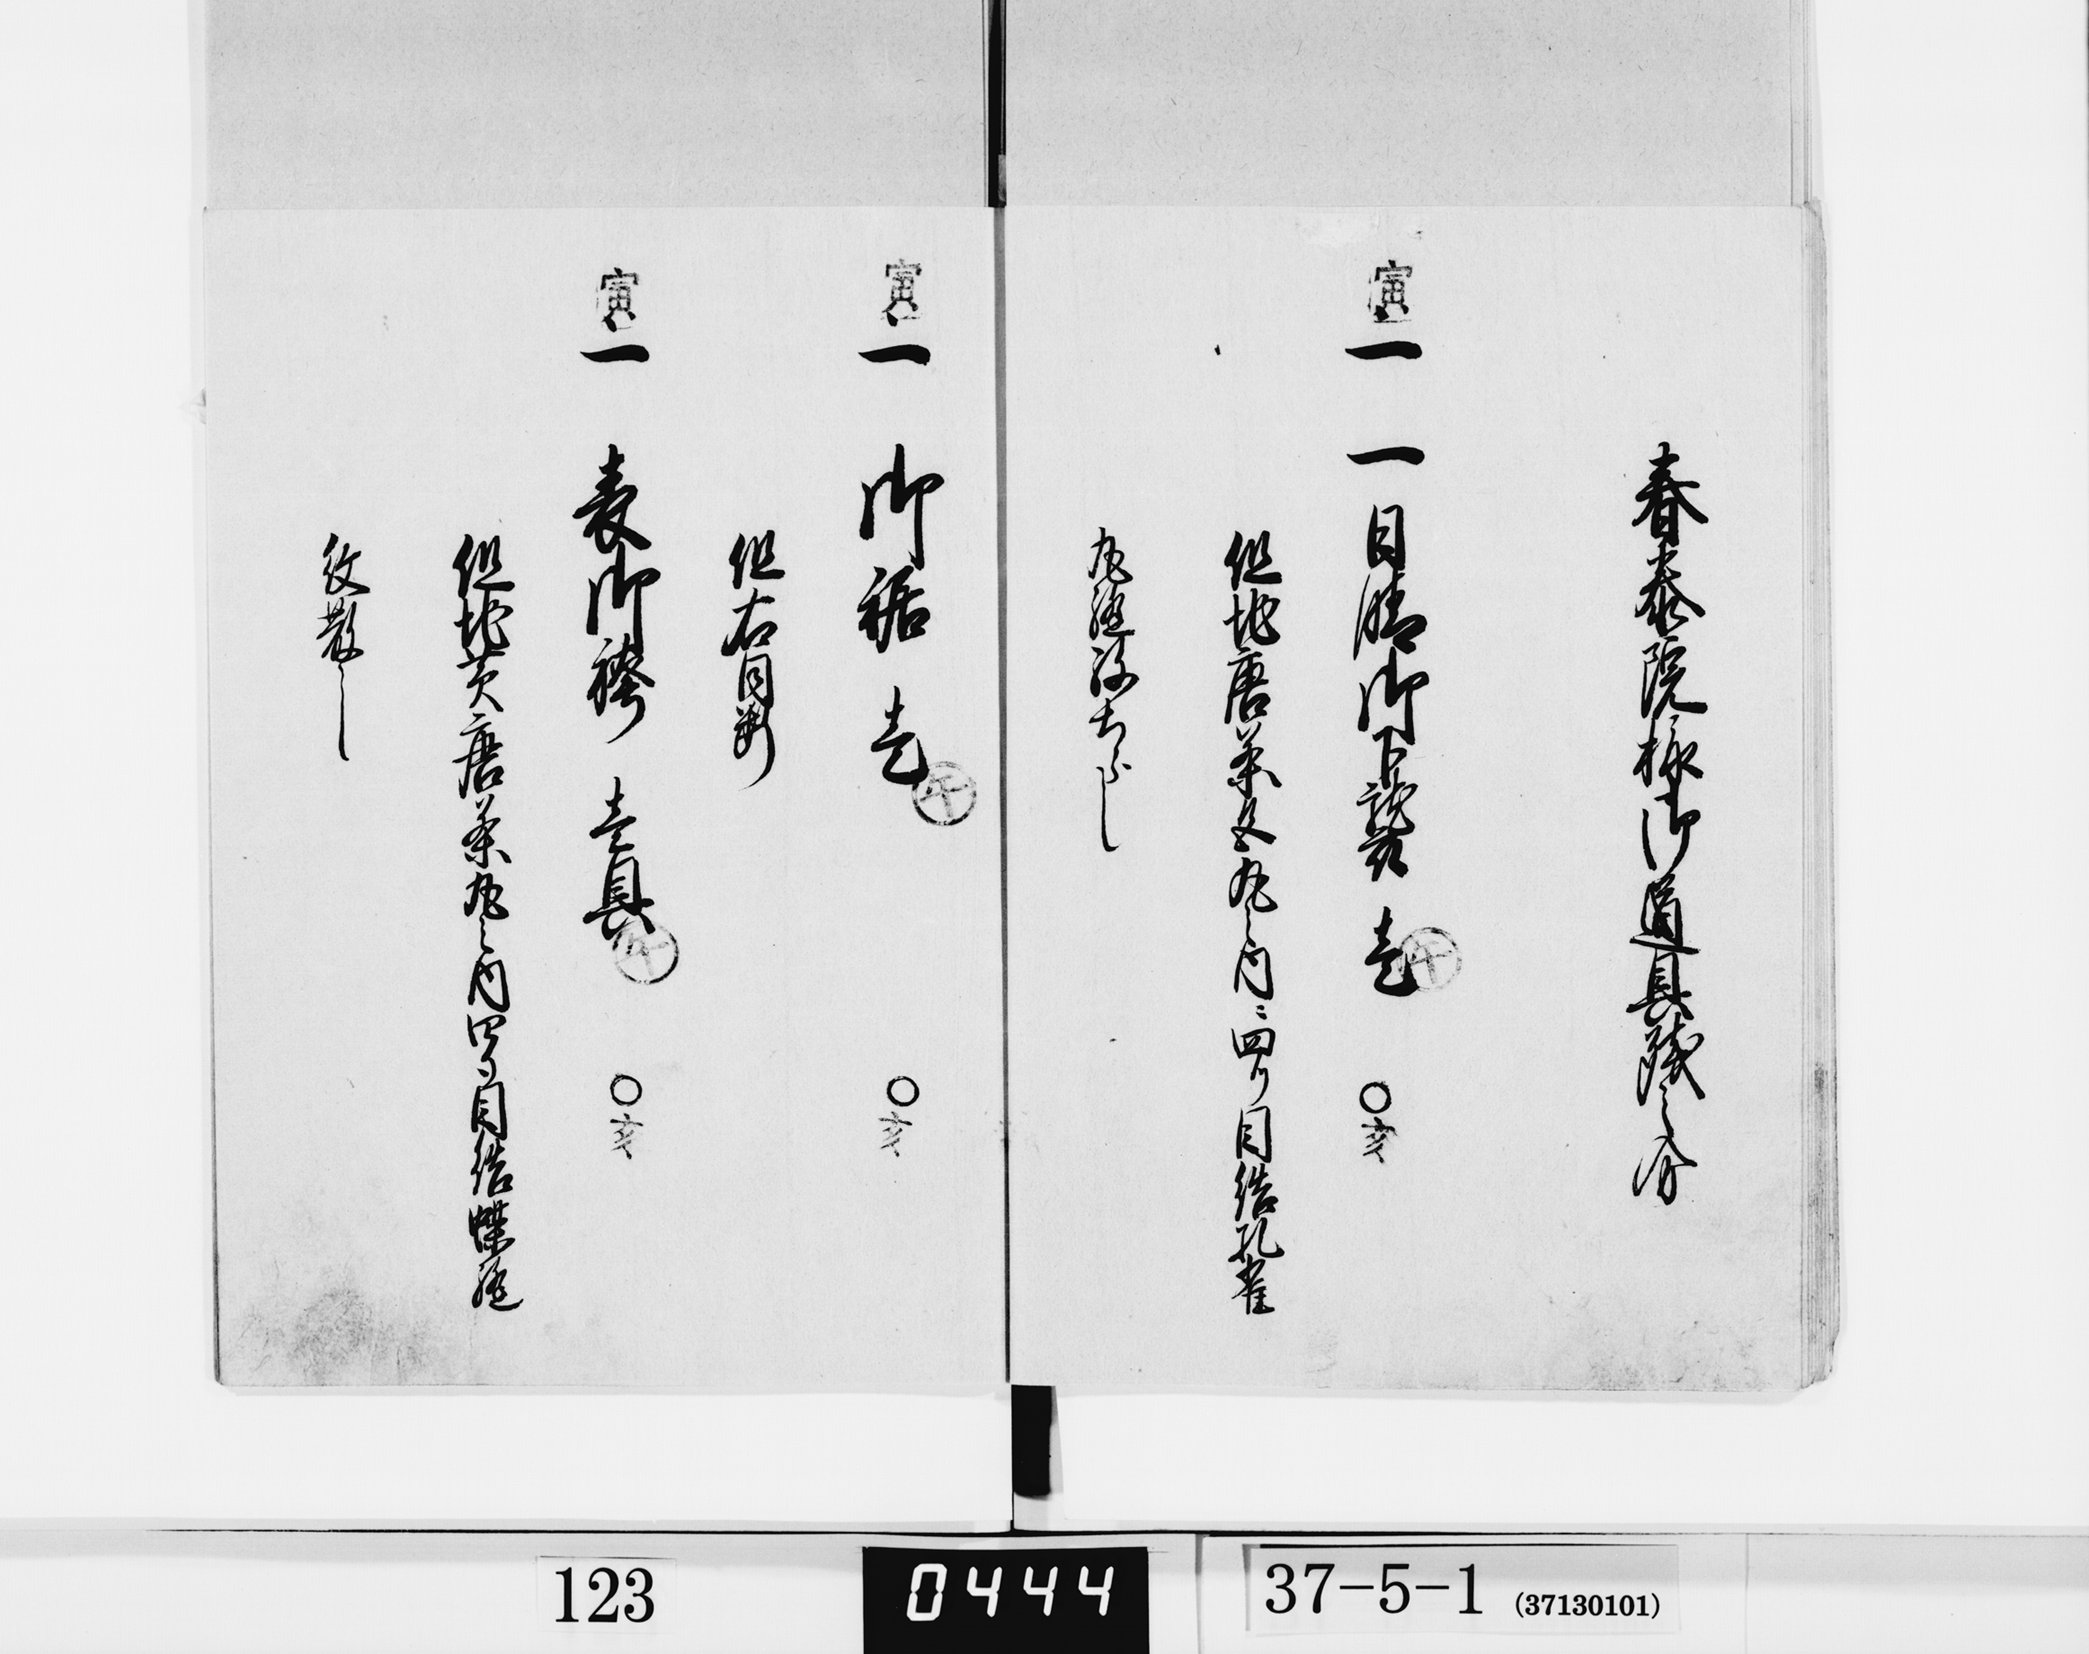 春泰院様御道具残之分
寅 一 一日晴御下襲 壱 午 ○亥
但地唐茶文丸之内ニ四ツ目結孔雀
丸縫ちらし
寅 一 御裾 壱 午 ○亥
但右同断
寅 一 表御袴 壱具 午 ○亥
但地黄唐茶丸之内四ツ目結蝶縫
紋散し
123
0444
37-5-1 (37130101)